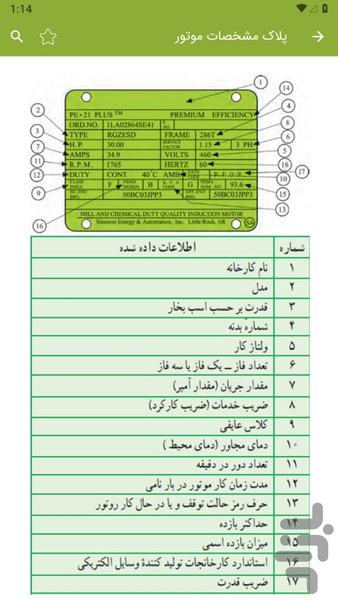 1:14
پلاک مشخصات موتور
PE•21 PLUS™ PREMIUM EFFICIENCY
ORD.NO. 1LA02864SE41
TYPE RGZESD FRAME 286T
H.P. 30.00 SERVICE FACTOR 1.15 3 PH
AMPS 34.9 VOLTS 460
R.P.M. 1765 HERTZ 60
DUTY CONT 40°C AMB. DATE CODE P.F 0.9
CLASS INSUL F NEMA DESIGN B K.V.A. CODE G NEMA NOM. EFF 93.6
50BC03JPP3 50BC03JPP3
MILL AND CHEMICAL DUTY QUALITY INDUCTION MOTOR
Siemens Energy & Automation, Inc. Little Rock, AR
SA
1
14
2
4
3
6
7
5
11
18
17
12
10
9
15
13
16
8
شماره اطلاعات داده شده
۱ نام کارخانه
۲ مدل
۳ قدرت بر حسب اسب بخار
۴ شمارهٔ بدنه
۵ ولتاژ کار
۶ تعداد فاز ــ یک فاز یا سه فاز
۷ مقدار جریان (مقدار آمپر)
۸ ضریب خدمات (ضریب کارکرد)
۹ کلاس عایقی
۱۰ دمای مجاور (دمای محیط)
۱۱ تعداد دور در دقیقه
۱۲ مدت زمان کار موتور در بار نامی
۱۳ حرف رمز حالت توقف و یا در حال کار روتور
۱۴ حداکثر بازده
۱۵ میزان بازده اسمی
۱۶ استاندارد کارخانجات تولید کنندهٔ وسایل الکتریکی
۱۷ ضریب قدرت
بازار